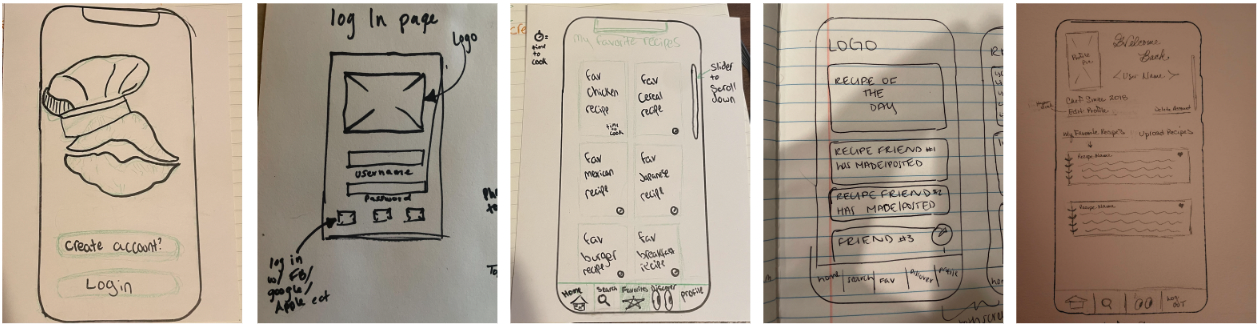 Create account?
Login
log In page
Logo
username
Password
log in
w/ FB/
google/
Apple ect
time
to
cook
My Favorite recipes
Slider
to
Scroll
down
fav
Chicken
recipe
time
to
cook
fav
Cereal
recipe
fav
mexican
recipe
fav
Japanese
recipe
fav
burger
recipe
fav
breakfast
recipe
Home
Search
Favorites
Discover
profile
LOGO
RECIPE OF
THE
DAY
RECIPE FRIEND #1
HAS MADE/POSTED
RECIPE FRIEND #2
HAS MADE/POSTED
FRIEND #3
Home
Search
FAV
Discover
profile
Welcome
Back
<User Name>
Chef Since 2018
Edit Profile
My Favorite Recipes
Upload Recipes
Recipe Name
Recipe Name
LOG
OUT